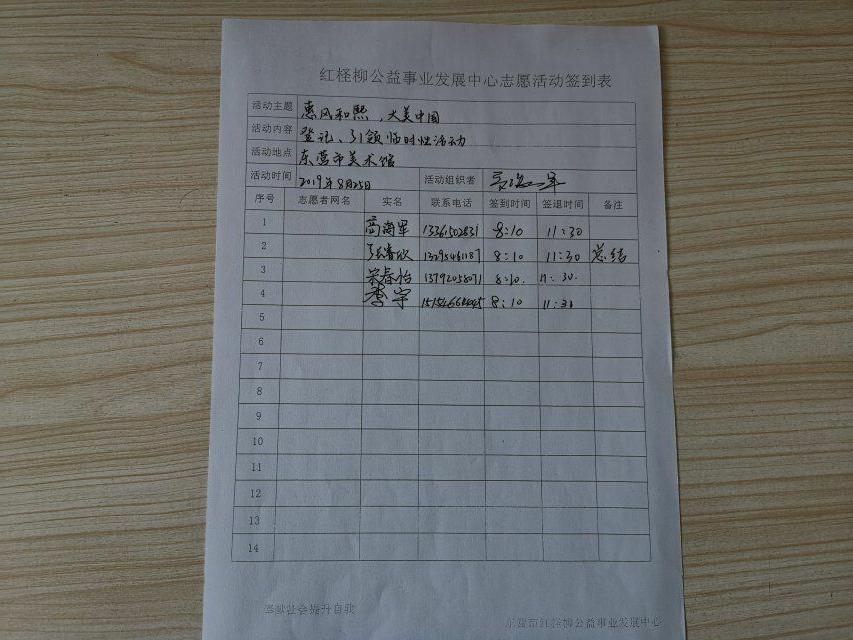 红柽柳公益事业发展中心志愿活动签到表
活动主题 惠风和熙，大美中国
活动内容 登记、引领临时性活动
活动地点 东营市美术馆
活动时间 2019年8月25日 活动组织者
序号 志愿者网名 实名 联系电话 签到时间 签退时间 备注
1 高海军 8:10 11:30
2 8:10 11:30 总结
3 宋春怡 13792058071 8:10. 11:30.
4 李宇 8:10
5
6
7
8
9
10
11
12
13
14
奉献社会提升自我
东营市红柽柳公益事业发展中心